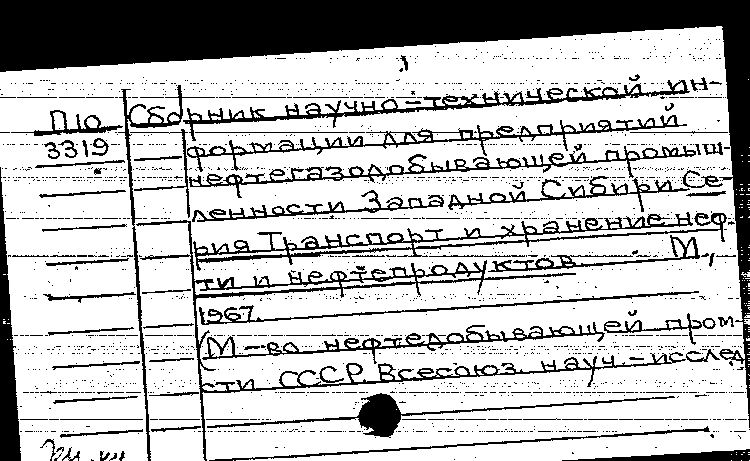 П10 Сборник научно-технической ин-
3319 формации для предприятий
нефтегазодобывающей промыш-
ленности Западной Сибири Се-
рия Транспорт и хранение неф-
ти и нефтепродуктов М.,
1967.
(М-во нефтедобывающей пром-
сти СССР. Всесоюз. науч.-исслед